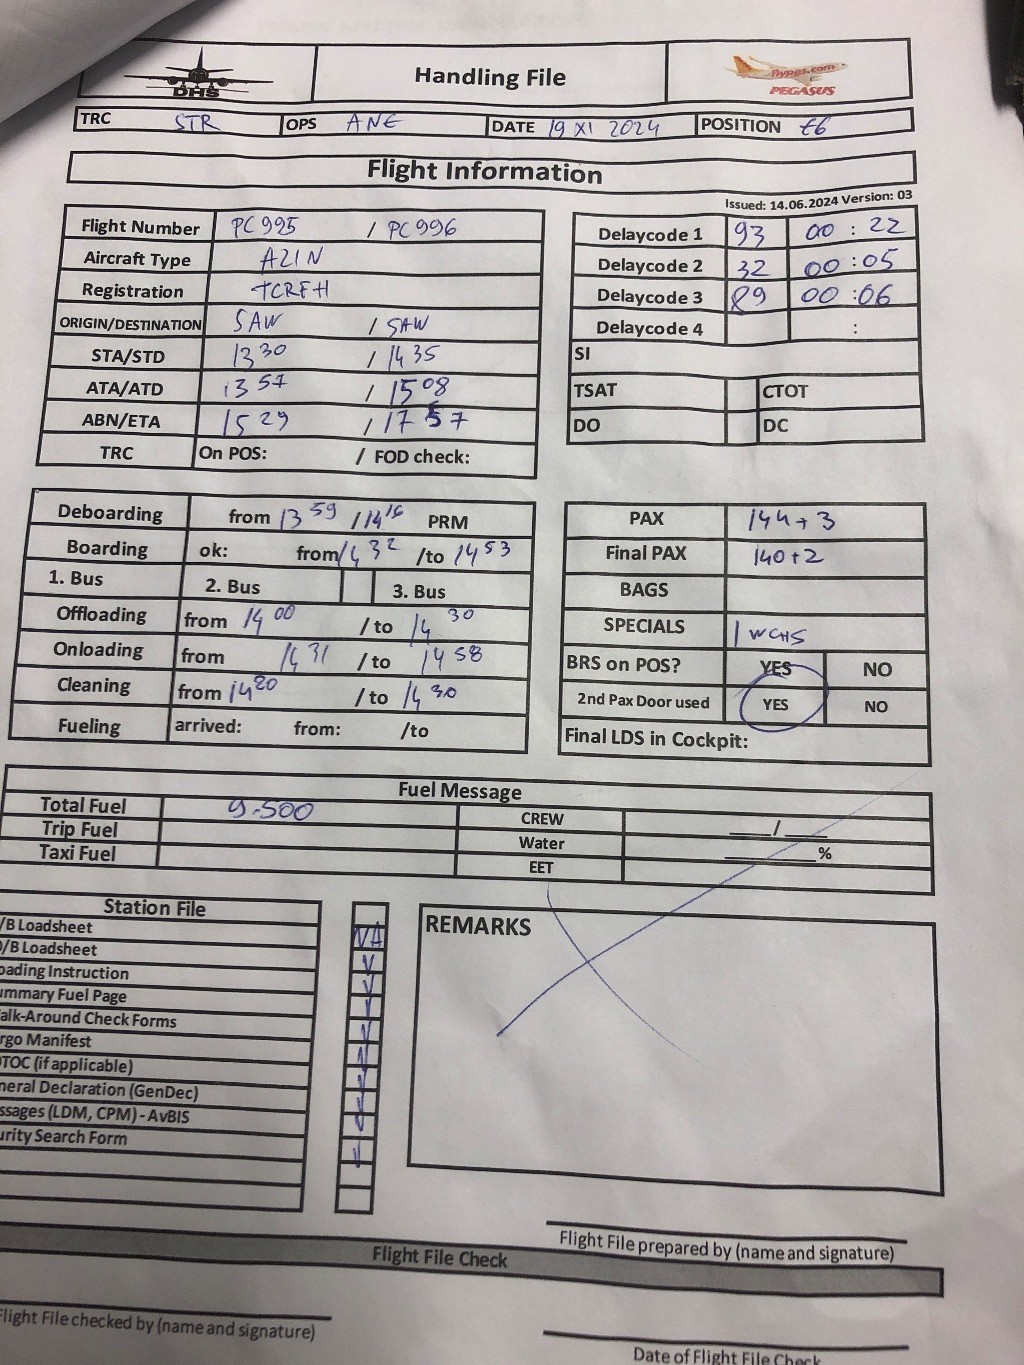 DHS
Handling File
flypgs.com
PEGASUS
TRC STR OPS ANE DATE 19 XI 2024 POSITION E6
Flight Information
Issued: 14.06.2024 Version: 03
Flight Number PC 995 / PC 996
Aircraft Type A21N
Registration TCRFH
ORIGIN/DESTINATION SAW / SAW
STA/STD 13 30 / 14 35
ATA/ATD 13 57 / 15 08
ABN/ETA 15 29 / 17 57
TRC On POS: / FOD check:
Delaycode 1 93 00 : 22
Delaycode 2 32 00 : 05
Delaycode 3 89 00 : 06
Delaycode 4 :
SI
TSAT CTOT
DO DC
Deboarding from 13 59 / 14 16 PRM
Boarding ok: from 14 32 /to 14 53
1. Bus 2. Bus 3. Bus
Offloading from 14 00 / to 14 30
Onloading from 14 31 / to 14 58
Cleaning from 14 20 / to 14 30
Fueling arrived: from: /to
PAX 144 + 3
Final PAX 140 + 2
BAGS
SPECIALS 1 WCHS
BRS on POS? YES NO
2nd Pax Door used YES NO
Final LDS in Cockpit:
Fuel Message
Total Fuel 9.500 CREW ___/___
Trip Fuel Water ______%
Taxi Fuel EET
Station File
/B Loadsheet NA
/B Loadsheet V
oading Instruction V
mmary Fuel Page V
alk-Around Check Forms V
rgo Manifest N
TOC (if applicable) V
neral Declaration (GenDec) V
ssages (LDM, CPM) - AvBIS V
urity Search Form V
REMARKS
Flight File prepared by (name and signature)
Flight File Check
Flight File checked by (name and signature)
Date of Flight File Check